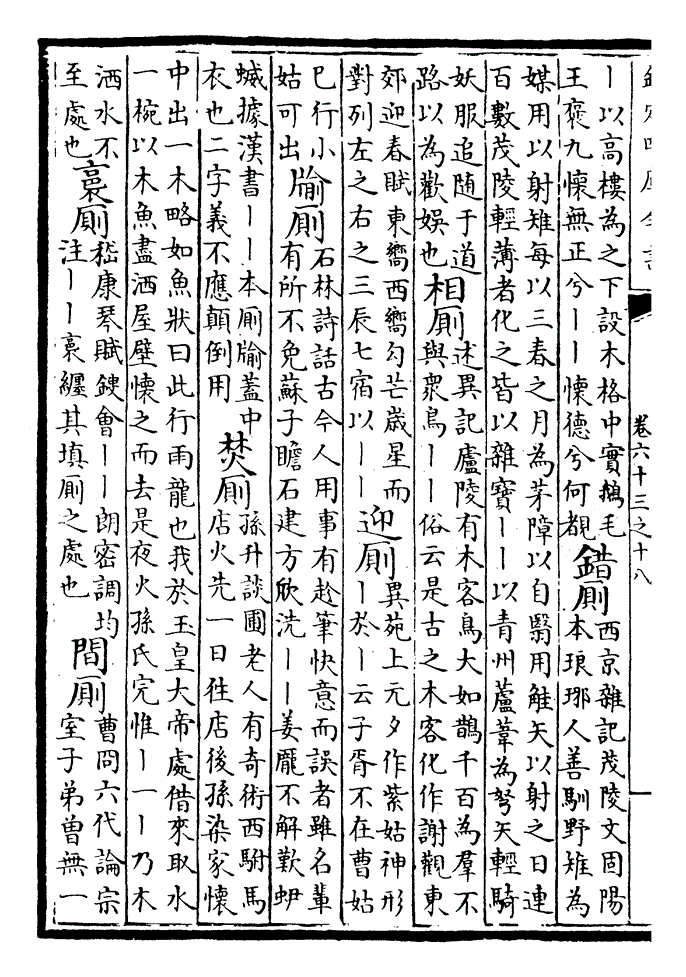 欽定四庫全書
卷六十三之十八
丨以高樓為之下設木格中實鵝毛
王褒九懷無正兮丨丨懷德兮何覩
錯厠
西京雜記茂陵文固陽
本琅琊人善馴野雉為
媒用以射雉每以三春之月為茅障以自翳用觟矢以射之日連
百數茂陵輕薄者化之皆以雜寶丨丨以青州蘆葦為弩矢輕騎
妖服追随于道
路以為歡娱也
相厠
述異記廬陵有木客鳥大如鵲千百為羣不
與衆鳥丨丨俗云是古之木客化作謝觀東
郊迎春賦東嚮西嚮勾芒歲星而
對列左之右之三辰七宿以丨丨
迎厠
異苑上元夕作紫姑神形
丨於丨云子胥不在曹姑
已行小
姑可出
牏厠
石林詩話古今人用事有趁筆快意而誤者雖名輩
有所不免蘇子瞻石建方欣洗丨丨姜龎不解歎蛜
蝛據漢書丨丨本厠牏蓋中
衣也二字義不應顛倒用
焚厠
孫升談圃老人有奇術西駙馬
店火先一日往店後孫染家懷
中出一木略如魚狀曰此行雨龍也我於玉皇大帝處借來取水
一椀以木魚盡洒屋壁懷之而去是夜火孫氏完惟丨一丨乃木
洒水不
至處也
裛厠
嵇康琴賦鍥會丨丨朗密調均
注丨丨裛纒其填厠之處也
間厠
曹冏六代論宗
室子弟曾無一